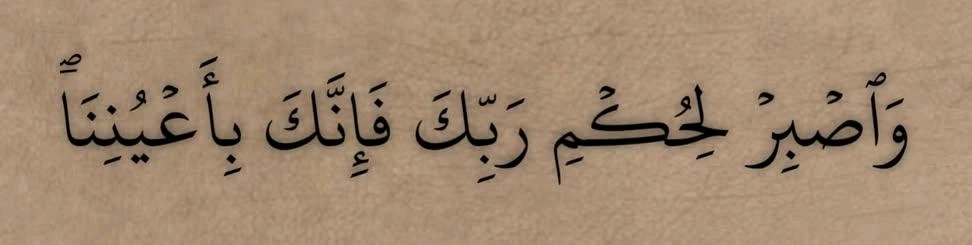 وَٱصْبِرْ لِحُكْمِ رَبِّكَ فَإِنَّكَ بِأَعْيُنِنَاۖ